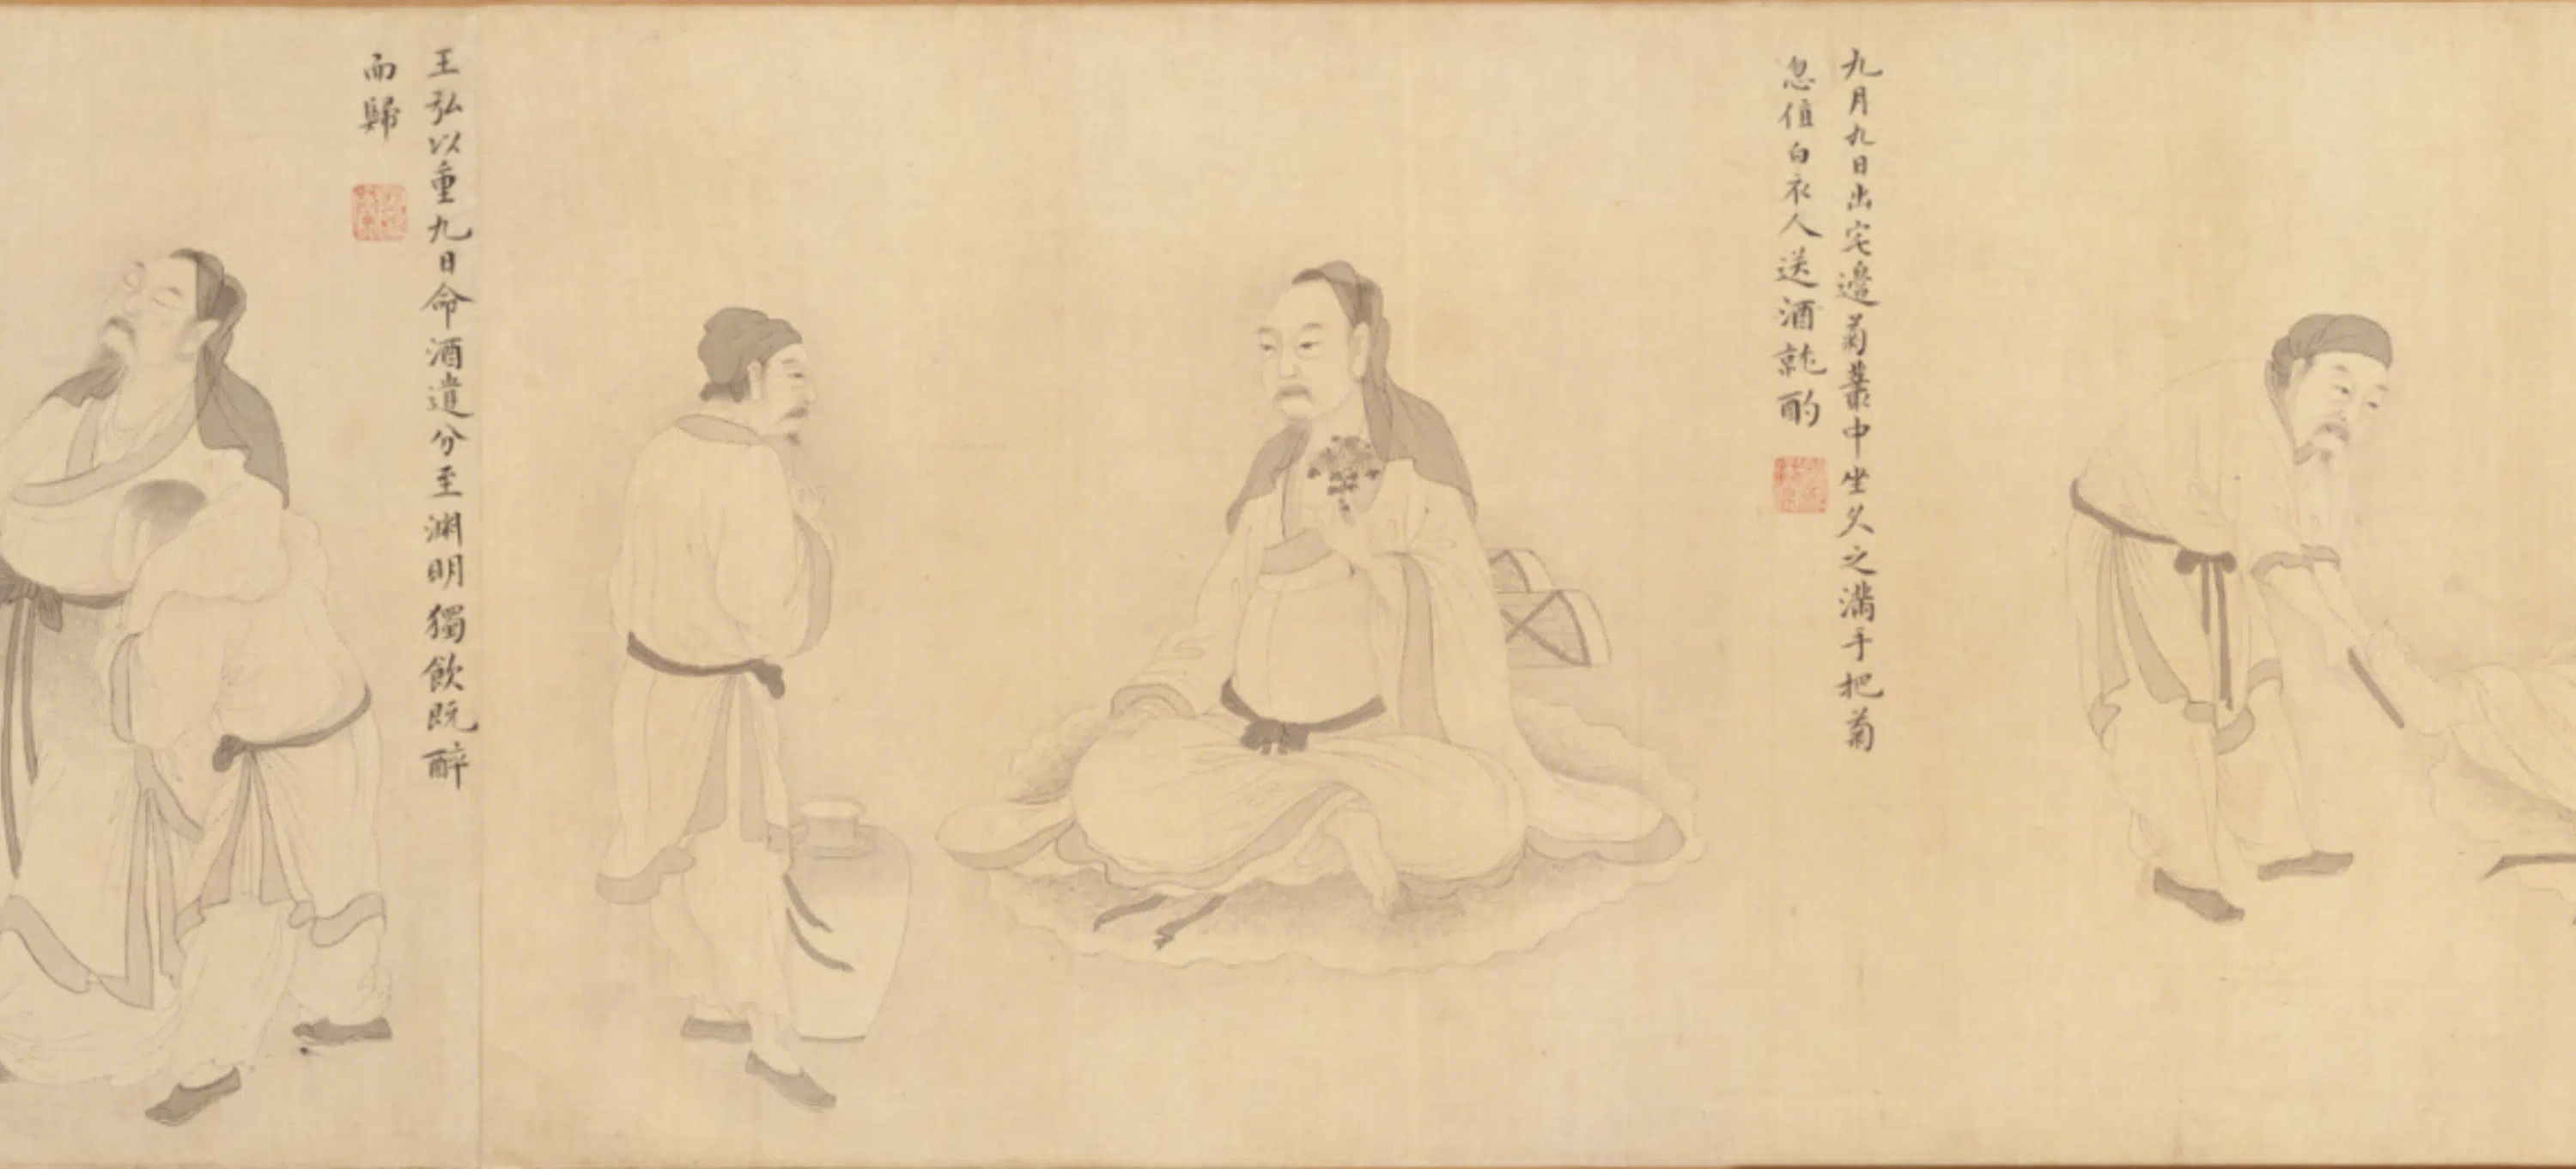 九月九日出宅邊菊叢中坐久之滿手把菊
忽值白衣人送酒就酌
王弘以重九日命酒遣分至淵明獨飲既醉
而歸